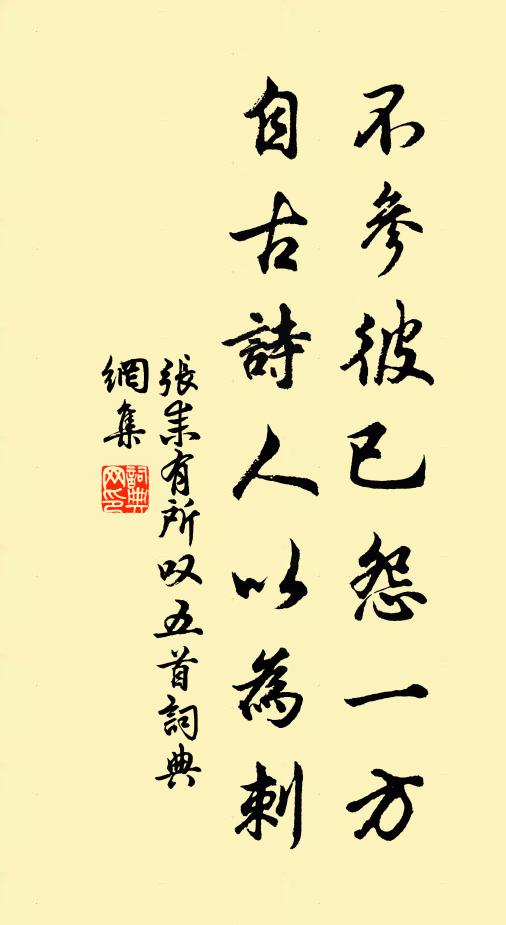 不參彼已怨一方
自古詩人以為刺
張耒有所叹五首詞典
網集
詞典網印